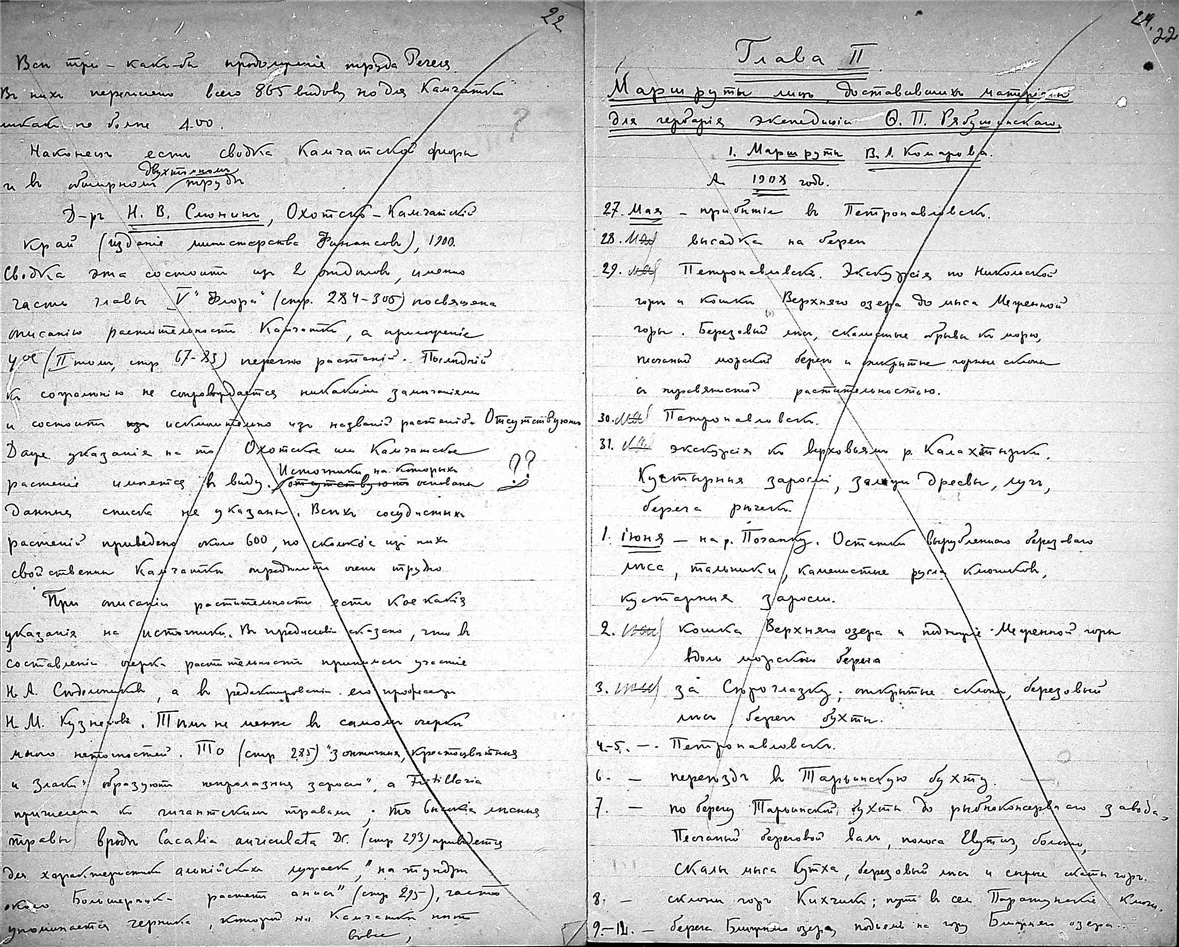 22
Все три – какъ-бы продолженіе труда Регеля.
Въ нихъ перечислено всего 865 видовъ, но для Камчатки
никакъ не болѣе 400.
?
Наконецъ есть сводка Камчатской флоры
и въ обширномъ двухтомномъ трудѣ
Д-ръ Н. В. Слюнинъ, Охотско-Камчатскій
край (изданіе министерства Финансовъ), 1900.
Сводка эта состоитъ изъ 2 отдѣловъ, именно
часть главы V "Флора" (стр. 284-305) посвящена
описанію растительности Камчатки, а приложеніе
(II томъ, стр. 67-83) перечню растеній. Послѣдній
къ сожалѣнію не сопровождается никакими замѣчаніями
и состоитъ исключительно изъ названій растеній. Отсутствуютъ
Даже указанія на то Охотское или Камчатское
растеніе имѣется въ виду. Источники, на которыхъ
отсутствуютъ основаны ??
Данныя списка не указаны. Всѣхъ сосудистыхъ
растеній приведено около 600, но сколько изъ нихъ
свойственны Камчаткѣ опредѣлить очень трудно.
При описаніи растительности есть кое какія
указанія на источники. Въ предисловіи сказано, что въ
составленіи очерка растительности принимали участіе
Н. А. , а въ редактированіи его профессоръ
Н. И. Кузнецовъ. Тѣмъ не менѣе въ самомъ очеркѣ
много неточностей. То (стр. 285) "зонтичныя, крестоцвѣтныя
и злаки" образуютъ непролазныя заросли", а Fritillaria
причислена къ гигантскимъ травамъ; то высокія лѣсныя
травы вродѣ Cacalia auriculata DC. (стр. 293) приводятся
для характеристики альпійскихъ лужаекъ, "на тундрѣ
около Большерѣцка растетъ анисъ" (стр 295), часто
упоминается черника, которой на Камчаткѣ нѣтъ
вовсе,
24.
22
Глава II
Маршруты лицъ, доставившихъ матеріалы
для гербарія экспедиціи Ѳ. П. Рябушинскаго.
1. Маршруты В. Л. Комарова.
А 1908 годъ.
27. Мая – прибытіе въ Петропавловскъ.
28. Мая высадка на берегъ
29. Мая Петропавловскъ. Экскурсія по Никольской
горѣ и кошкѣ Верхняго озера до мыса Мешенной
горы. Березовый лѣсъ, скалистые обрывы къ морю,
песчаный морской берегъ и открытые горные склоны
съ травянистой растительностью.
30. Мая Петропавловскъ.
31. Мая экскурсія къ верховьямъ р. Калахтырки.
Кустарныя заросли, залежи дресвы, лугъ,
берега рѣчки.
1. Іюня – на р. Поганку. Остатки вырубленнаго березоваго
лѣса, тальники, каменистые русла ключиковъ,
кустарныя заросли.
2. Іюня кошка Верхняго озера и подножіе Мешенной горы
вдоль морского берега
3. Іюня за Сѣроглазку: открытые склоны, березовый
лѣсъ берегъ бухты.
4-5. –. Петропавловскъ.
6. – переѣздъ въ Тарьинскую бухту.
7. – по берегу Тарьинской бухты до рыбоконсервнаго завода,
Песчаный береговой валъ, полоса Elymus, болото,
Скалы мыса Кутха, березовый лѣсъ и сырые скаты горъ.
8. – склоны горъ Кихчикъ; путь въ сел. Паратунскіе Ключи.
9.-11. – берега Ближняго озера, подъемъ на гору Ближняго озера.